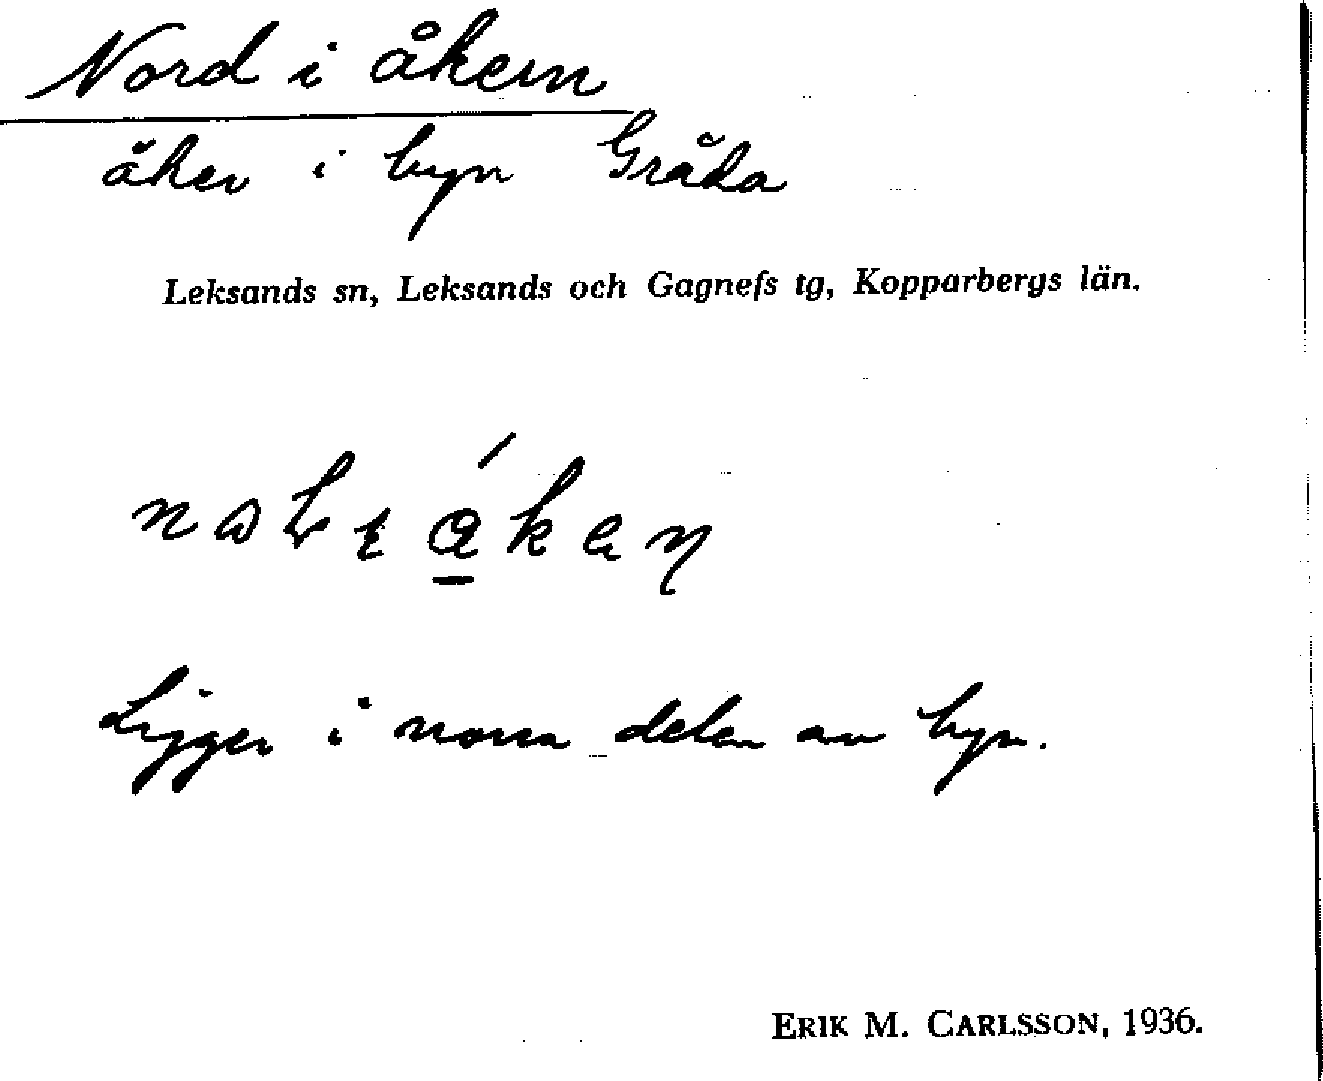 Nord i åkern
åker i byn Gråda
Leksands sn, Leksands och Gagnefs tg, Kopparbergs län.
Ligger i norra delen av byn.
ERIK M. CARLSSON, 1936.